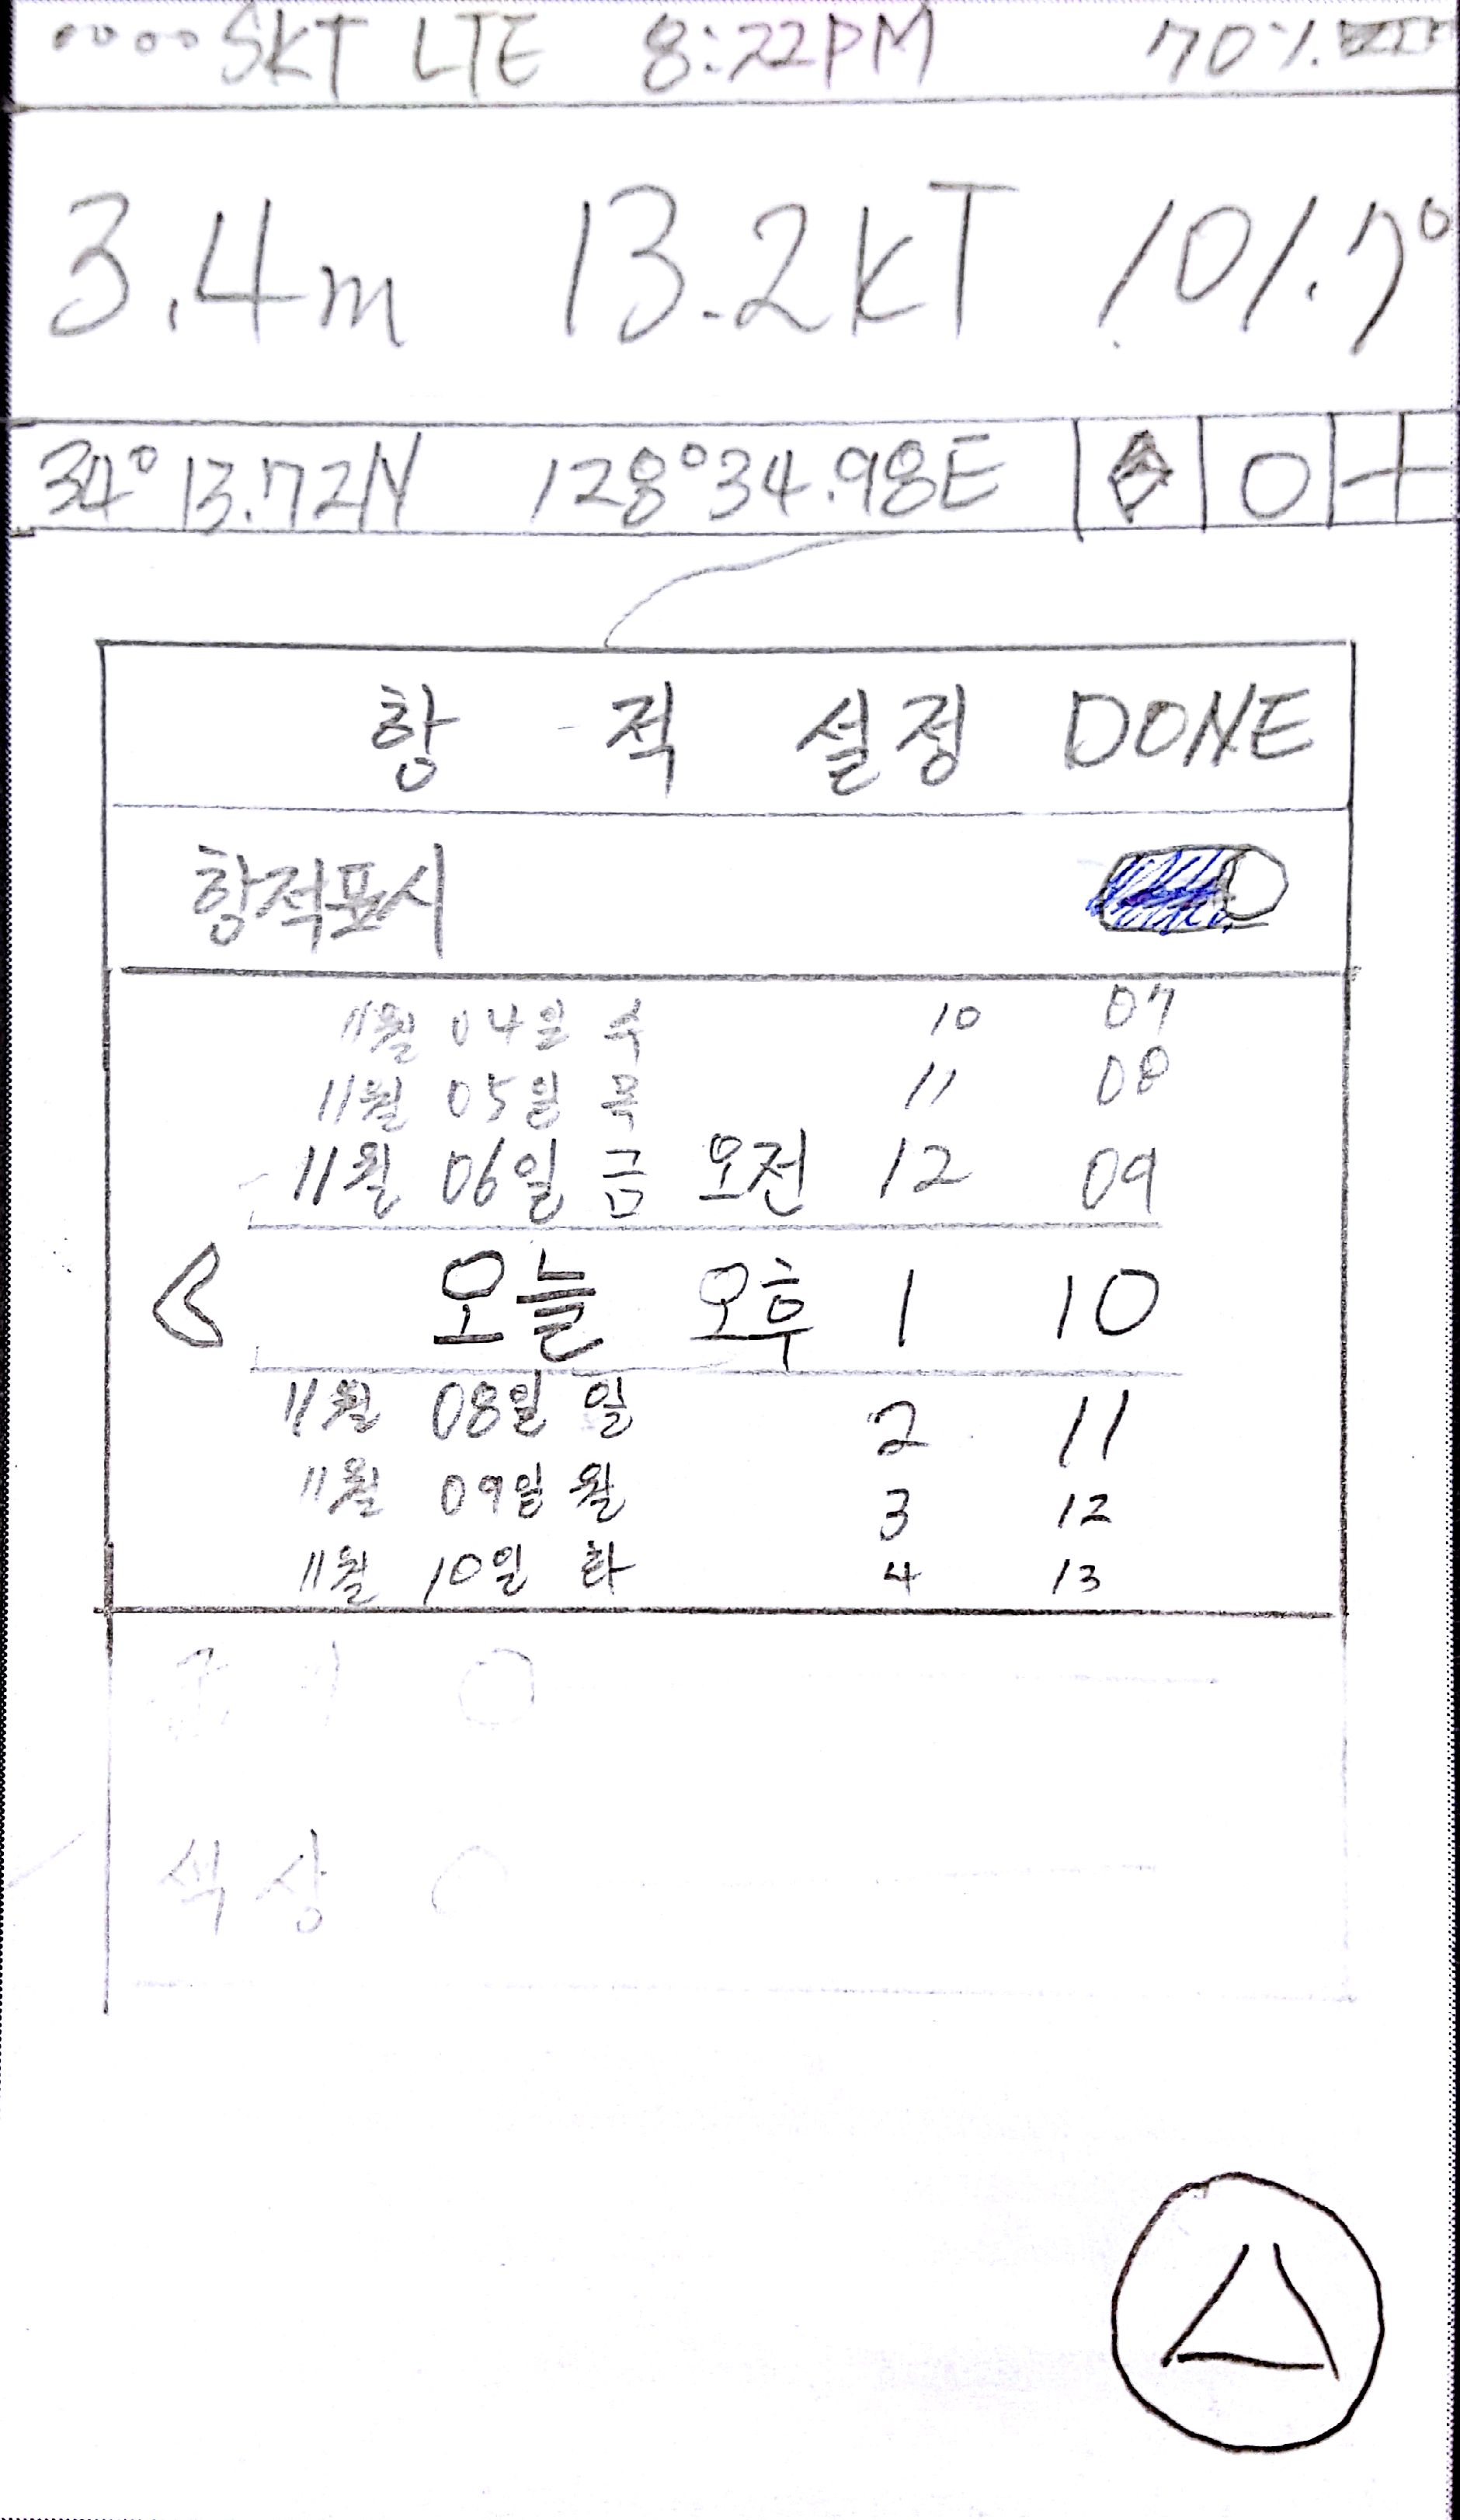 SKT LTE 8:22PM 70%
3.4m 13.2kT 101.7°
34° 13.72N 128°34.98E
항 적 설정 DONE
항적표시
11월 04일 수 10 07
11월 05일 목 11 08
11월 06일 금 오전 12 09
오늘 오후 1 10
11월 08일 일 2 11
11월 09일 월 3 12
11월 10일 화 4 13
색상